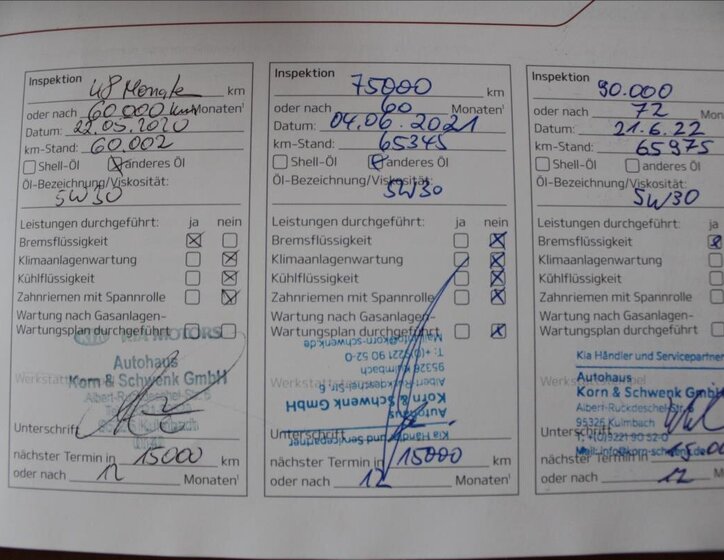 Inspektion 48 Monate km
oder nach 60.000 km Monaten¹
Datum: 22.05.2020
km-Stand: 60.002
Shell-Öl anderes Öl
Öl-Bezeichnung/Viskosität:
5W30
Leistungen durchgeführt: ja nein
Bremsflüssigkeit
Klimaanlagenwartung
Kühlflüssigkeit
Zahnriemen mit Spannrolle
Wartung nach Gasanlagen-
Wartungsplan durchgeführt
KIA MOTORS
Autohaus
Korn & Schwenk GmbH
Albert-Ruckdeschel-Str. 6
95326 Kulmbach
Unterschrift
nächster Termin in 15000 km
oder nach 12 Monaten¹
Inspektion 75000 km
oder nach 60 Monaten¹
Datum: 04.06.2021
km-Stand: 65345
Shell-Öl anderes Öl
Öl-Bezeichnung/Viskosität:
5W30
Leistungen durchgeführt: ja nein
Bremsflüssigkeit
Klimaanlagenwartung
Kühlflüssigkeit
Zahnriemen mit Spannrolle
Wartung nach Gasanlagen-
Wartungsplan durchgeführt
Kia Händler und Servicepartner
Autohaus
Korn & Schwenk GmbH
Albert-Ruckdeschel-Str. 6
95326 Kulmbach
T: +(0)9221 90 52-0
Mail: info@korn-schwenk.de
Unterschrift
nächster Termin in 15000 km
oder nach 12 Monaten¹
Inspektion 90.000
oder nach 72 Monaten
Datum: 21.6.22
km-Stand: 65975
Shell-Öl anderes Öl
Öl-Bezeichnung/Viskosität:
5W30
Leistungen durchgeführt: ja
Bremsflüssigkeit
Klimaanlagenwartung
Kühlflüssigkeit
Zahnriemen mit Spannrolle
Wartung nach Gasanlagen-
Wartungsplan durchgeführt
Kia Händler und Servicepartner
Autohaus
Korn & Schwenk GmbH
Albert-Ruckdeschel-Str. 6
95326 Kulmbach
T: +(0)9221 90 52-0
Mail: info@korn-schwenk.de
Unterschrift
nächster Termin in
oder nach 12 Monaten¹